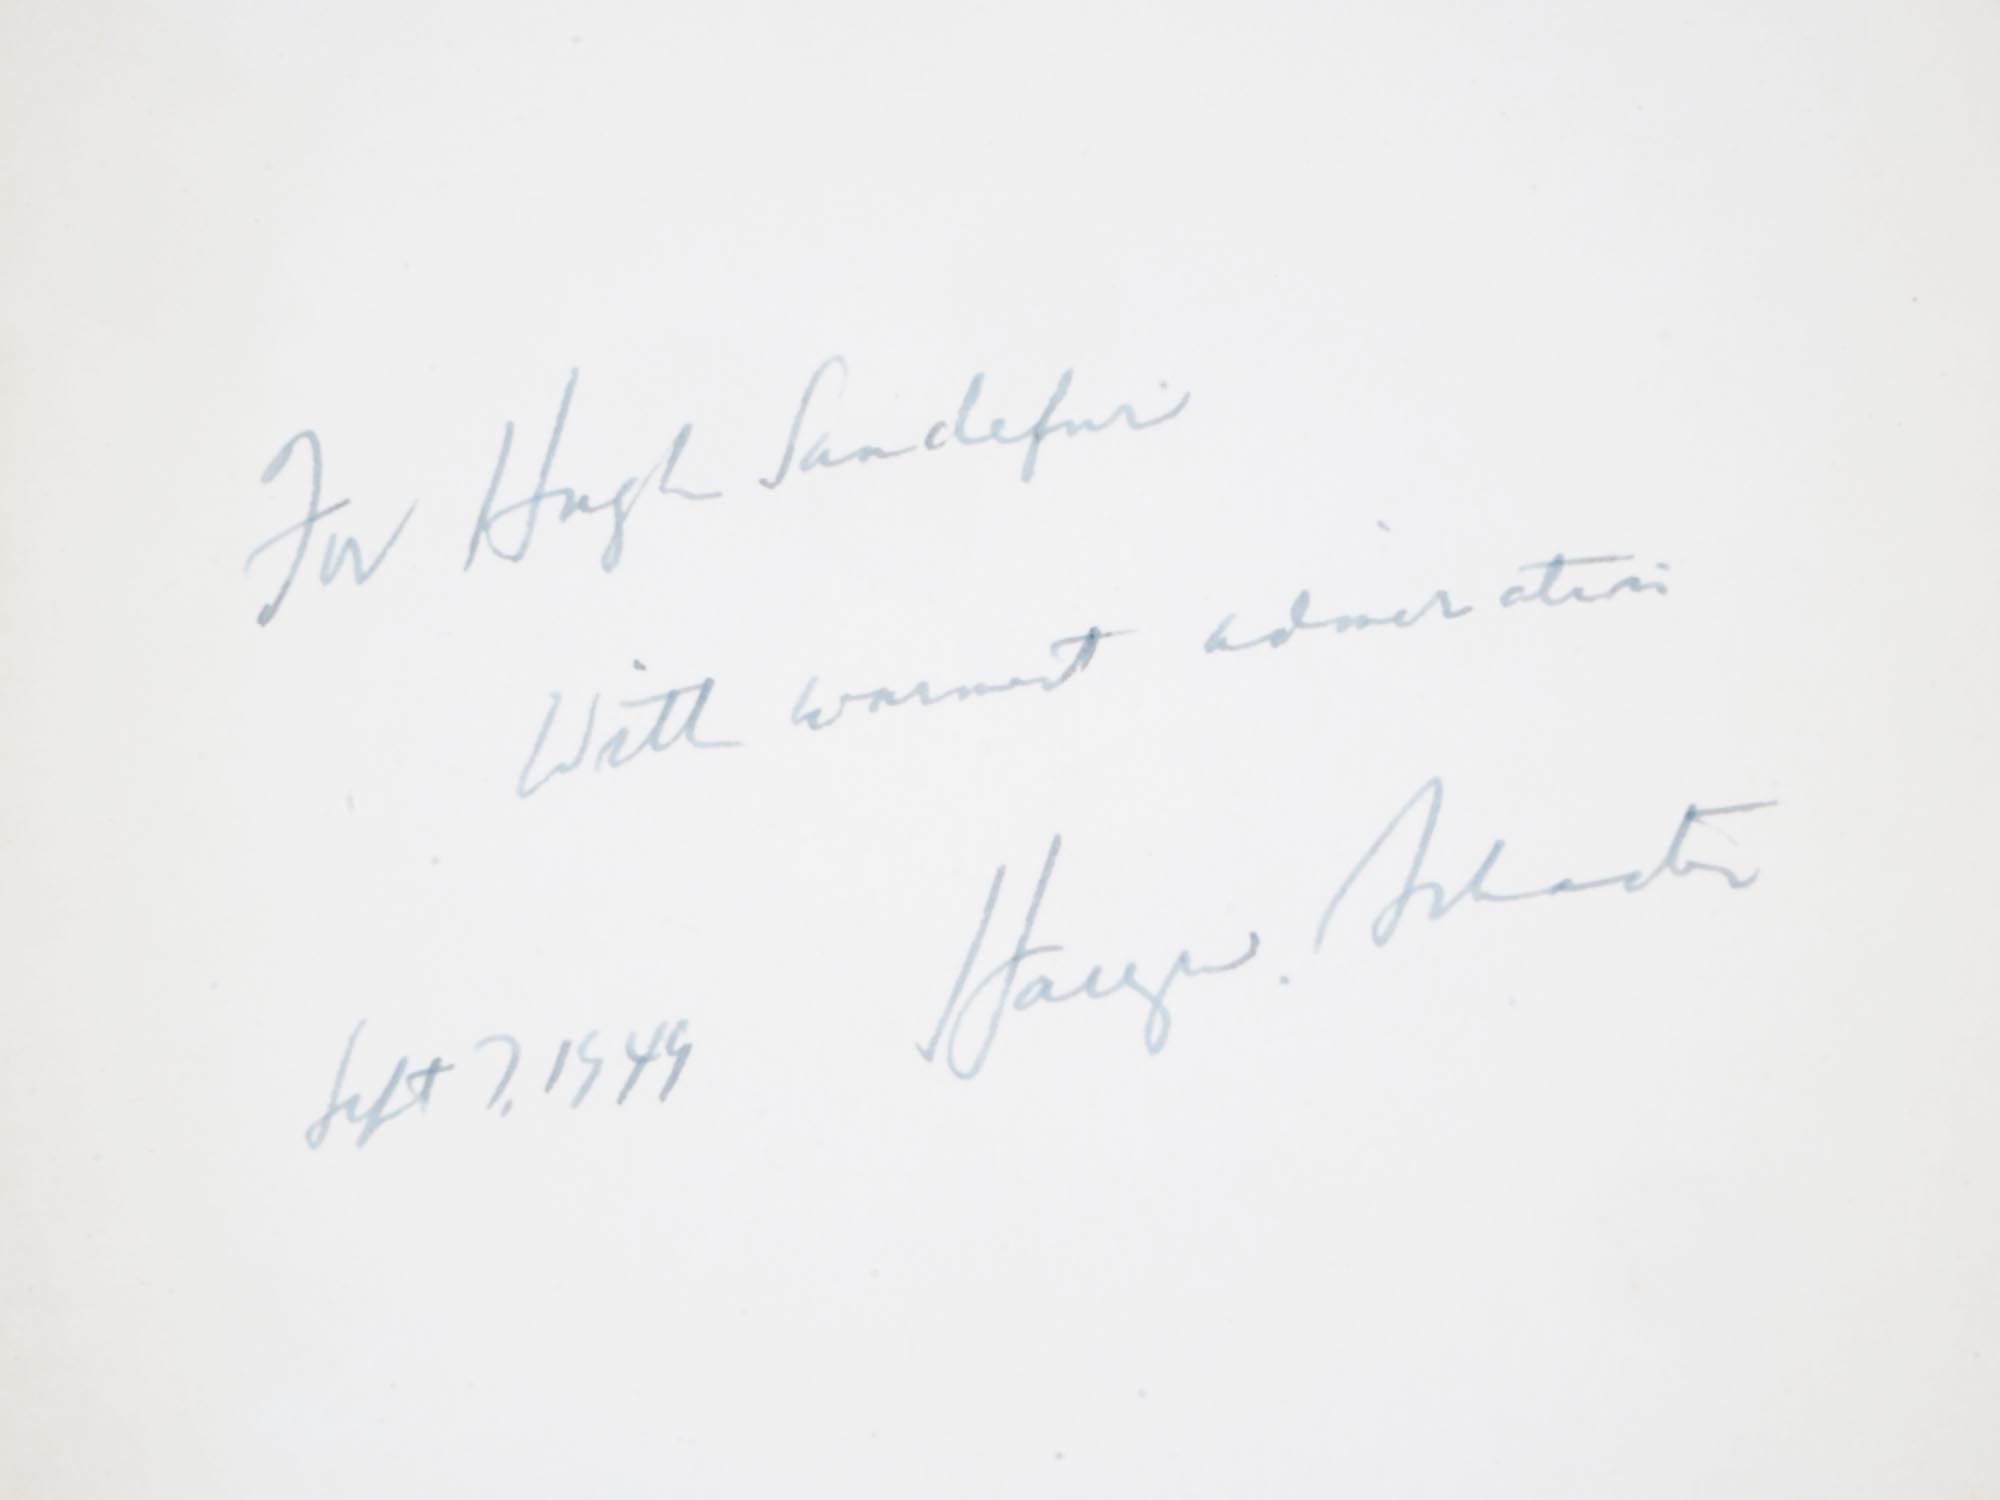 For Hugh Sandefur
With warmest admiration
Sept 7, 1949